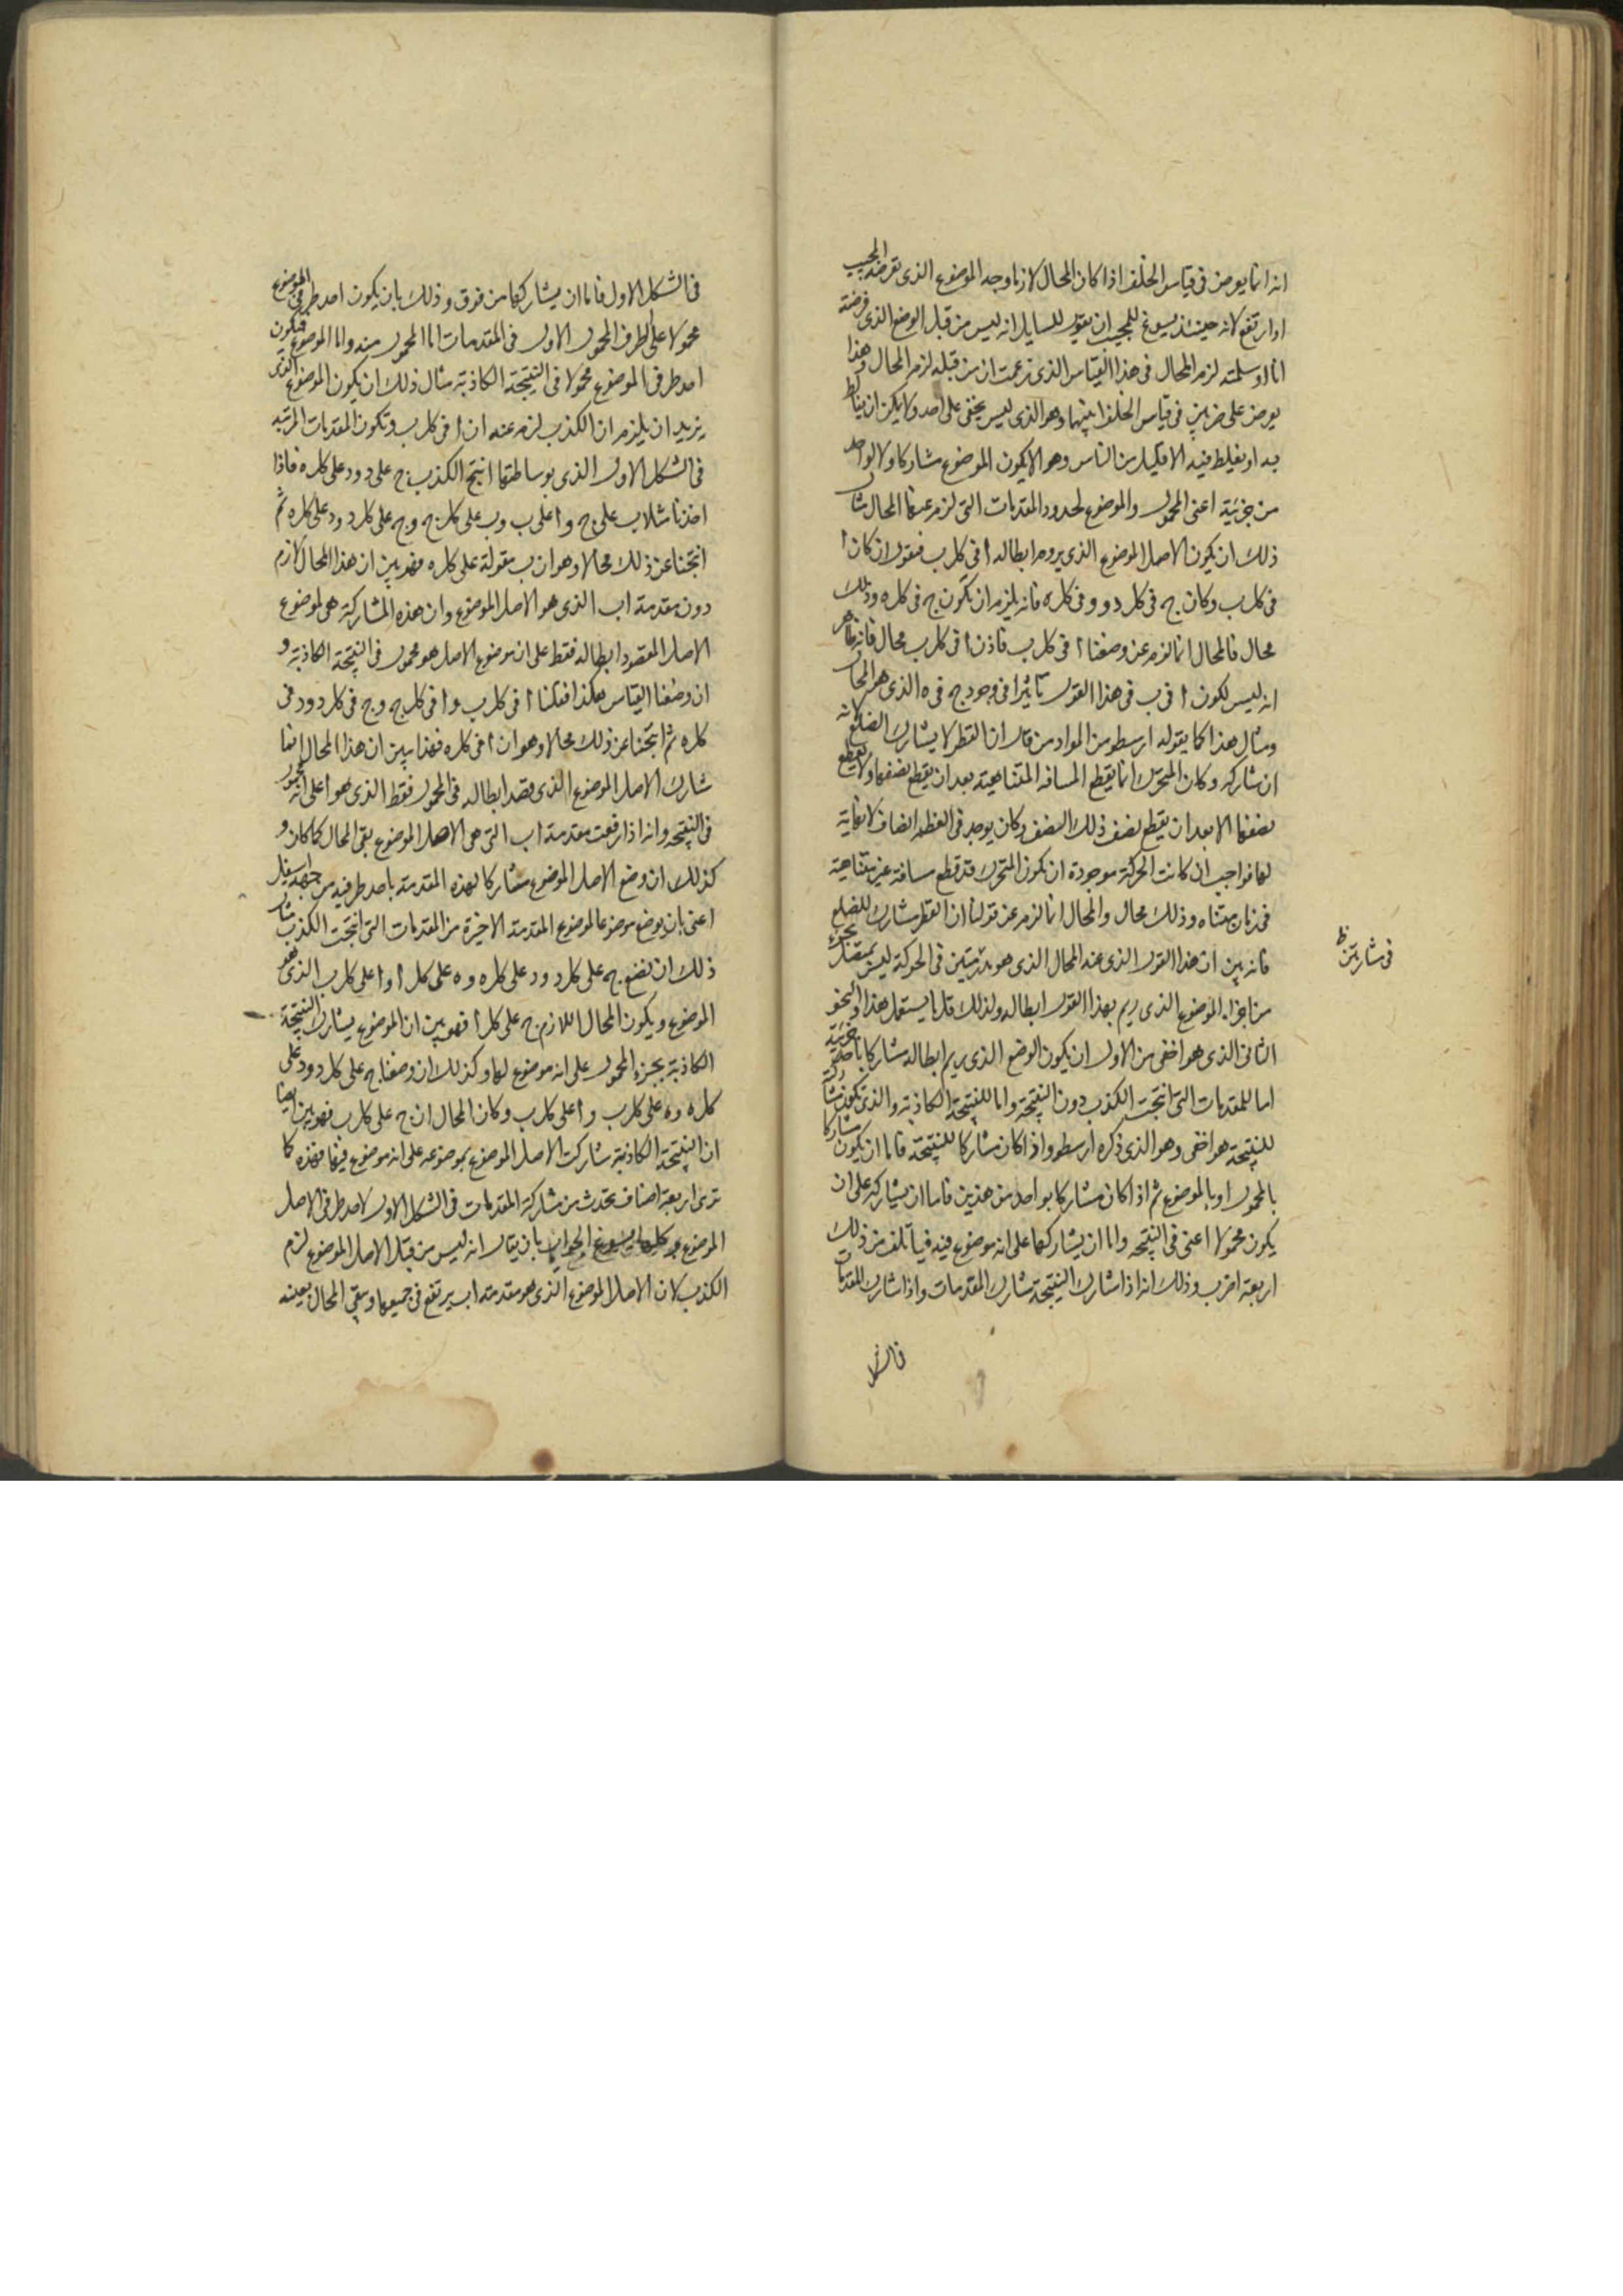 انه انما يعرض فى قياس الخلف اذا كان المحال لازما وجد الموضوع الذى تعرضه المجيب
او ارتفع لانه حينئذ يسوغ للمجيب ان يقول للسايل انه ليس من قبل الوضع الذى فرضته
انا او سلمته لزم المحال فى هذا القياس الذى زعمت ان من قبله لزم المحال وهذا
يعرض على ضربين فى قياس الخلف ابينهما وهو الذى ليس يخفى على احد ولا يمكن ان يغالط
به او يغلط فيه الا قليل من الناس وهو الا يكون الموضوع مشاركا ولا لواحد
من جزئية اعنى المحمول والموضوع لحدود المقدمات التى لزم عنها المحال مثال
ذلك ان يكون الاصل الموضوع الذى يروم ابطاله ا فى كل ب فنقول ان كان ا
فى كل ب وكان ج فى كل د و د فى كل ه فانه يلزم ان تكون ج فى كل ه وذلك
محال فالمحال انما لزم عن وضعنا ا فى كل ب فاذن ا فى كل ب محال فانه ظاهر
انه ليس لكون ا فى ب فى هذا القول تاثيرا فى وجود ج فى ه الذى هو المحال
ومثال هذا كما يقوله ارسطو من المواد من قال ان القطر لا يشارك الضلع لانه
ان شاركه وكان المتحرك انما يقطع المسافه المتناهية بعد ان يقطع نصفها ولا يقطع
نصفها الا بعد ان يقطع نصف ذلك النصف وكان يوجد فى العظم انصاف لا نهاية
لها فواجب ان كانت الحركة موجودة ان تكون المتحرك قد قطع مسافة غير متناهية
فى زمان متناه وذلك محال والمحال انما لزم عن قولنا ان القطر مشارك للضلع
فانه بين ان هذا القول الذى عند المحال الذى هو فى الحركة ليس بمتصل بجزء
فى مشاربتين ظ
من اجزاء الموضوع الذى ريم بهذا القول ابطاله ولذلك قل ما يستعمل هذا والنحو
الثانى الذى هو اخفى من الاول ان يكون الوضع الذى يريم ابطاله مشاركا باحد جزئية
اما للمقدمات التى انتجت الكذب دون النتيجة واما للنتيجة الكاذبة والذى تكون مشاركة
للنتيجة هو اخفى وهو الذى ذكره ارسطو واذا كان مشاركا للنتيجة فاما ان يكون مشاركا
بالمحمول او بالموضوع ثم اذا كان مشاركا بواحد من هذين فاما ان يشاركه على ان
يكون محمولا اعنى فى النتيجه واما ان يشاركها على انه موضوع فيه فيأتلف من ذلك
اربعة اضرب وذلك انه اذا شارك النتيجة شارك المقدمات واذا شارك المقدمات
فى الشكل
فى الشكل الاول فاما ان يشاركها من فوق وذلك بان يكون احد طرفى الموضوع
محمولا على الطرف المحمول الاول فى المقدمات اما المحمول منه واما الموضوع فيكون
احد طرفى الموضوع محمولا فى النتيجة الكاذبة مثال ذلك ان يكون الموضوع الذى
يزيد ان يلزم ان الكذب لزم عنه ان ا فى كل ب وتكون المقدمات المرتبه
فى الشكل الاول الذى بوساطتها انتج الكذب ج على د و د على كل ه فاذا
اخذنا مثلا ب على ج و ا على ب و ب على كل ج و ج على كل د و د على كل ه ثم
انتجنا عن ذلك محالا وهو ان ب مقولة على كل ه فهو بين ان هذا المحال لازم
دون مقدمة اب الذى هو الاصل الموضوع وان هذه المشاركة هى لموضوع
الاصل المقصود ابطاله فقط على ان موضوع الاصل هو محمول فى النتيجة الكاذبة و
ان وضعنا القياس هكذا فقلنا ا فى كل ب و ا فى كل ج و ج فى كل د و د فى
كل ه ثم انتجنا عن ذلك محالا وهو ان ا فى كل ه فهذا بين ان هذا المحال انما
شارك الاصل الموضوع الذى قصد ابطاله فى المحمول فقط الذى هو ا على انه محمول
فى النتيجه وانه اذا رفعت مقدمة اب التى هى الاصل الموضوع بقى المحال كما كان و
كذلك ان وضع الاصل الموضوع مشاركا لهذه المقدمة باحد طرفيه من جهة اسفل
اعنى بان يوضع موضوعا لموضوع المقدمة الاخيرة من المقدمات التى انتجت الكذب مثال
ذلك ان نضع ج على كل د و د على كل ه و ه على كل ا و ا على كل ب الذى هو
الموضوع ويكون المحال اللازم ج على كل ا فهو بين ان الموضوع يشارك النتيجة
الكاذبة بجزء المحمول على انه موضوع لها وكذلك ان وضعنا ج على كل د و د على
كل ه و ه على كل ب و ا على كل ب وكان المحال ان ج على كل ب فهو بين ايضا
ان النتيجة الكاذبة شاركت الاصل الموضوع بموضوعه على انه موضوع فيها فهذه كما
ترى اربعة اصناف تحدث من مشاركة المقدمات فى الشكل الاول لاحد طرفى الاصل
الموضوع وكلها يسوغ الجواب بان يقال انه ليس من قبل الاصل الموضوع لزم
الكذب لان الاصل الموضوع الذى هو مقدمة اب يرتفع فى جميعها ويبقى المحال بعينه